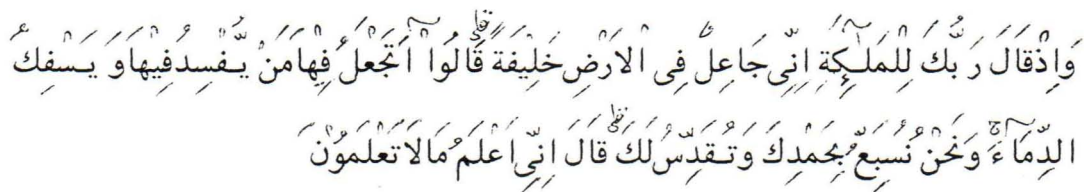 وَاِذْقَالَ رَبُّكَ لِلْمَلٰٓئِكَةِ اِنِّى جَاعِلٌ فِى الْاَرْضِ خَلِيفَةً ۗ قَالُوْا اَتَجْعَلُ فِهَامَنْ يُّفْسِدُفِيهَاوَ يَسْفِكُ
الدِّمَآءَ ۚ وَنَحْنُ نُسَبِّعُ بِحَمْدِكَ وَتُقَدِّسُ لَكَ ۗ قَالَ اِنِّىٓ اَعْلَمُ مَالَاتَعْلَمَوُنَ